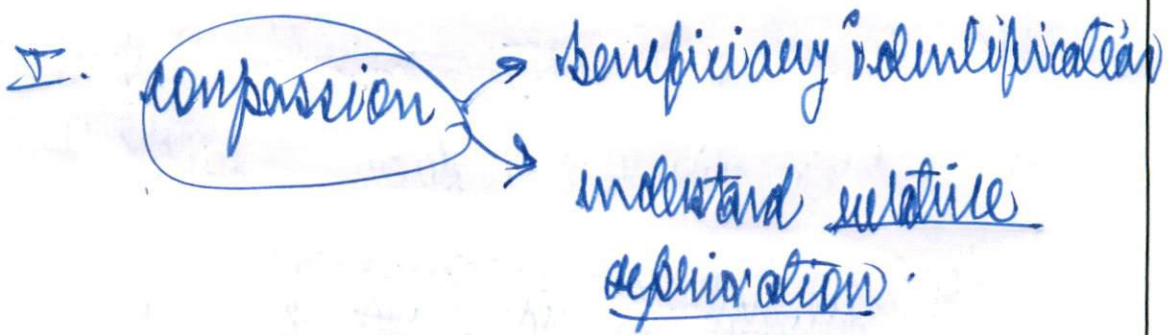 I. compassion → beneficiary identification
→ understand relative
deprivation.